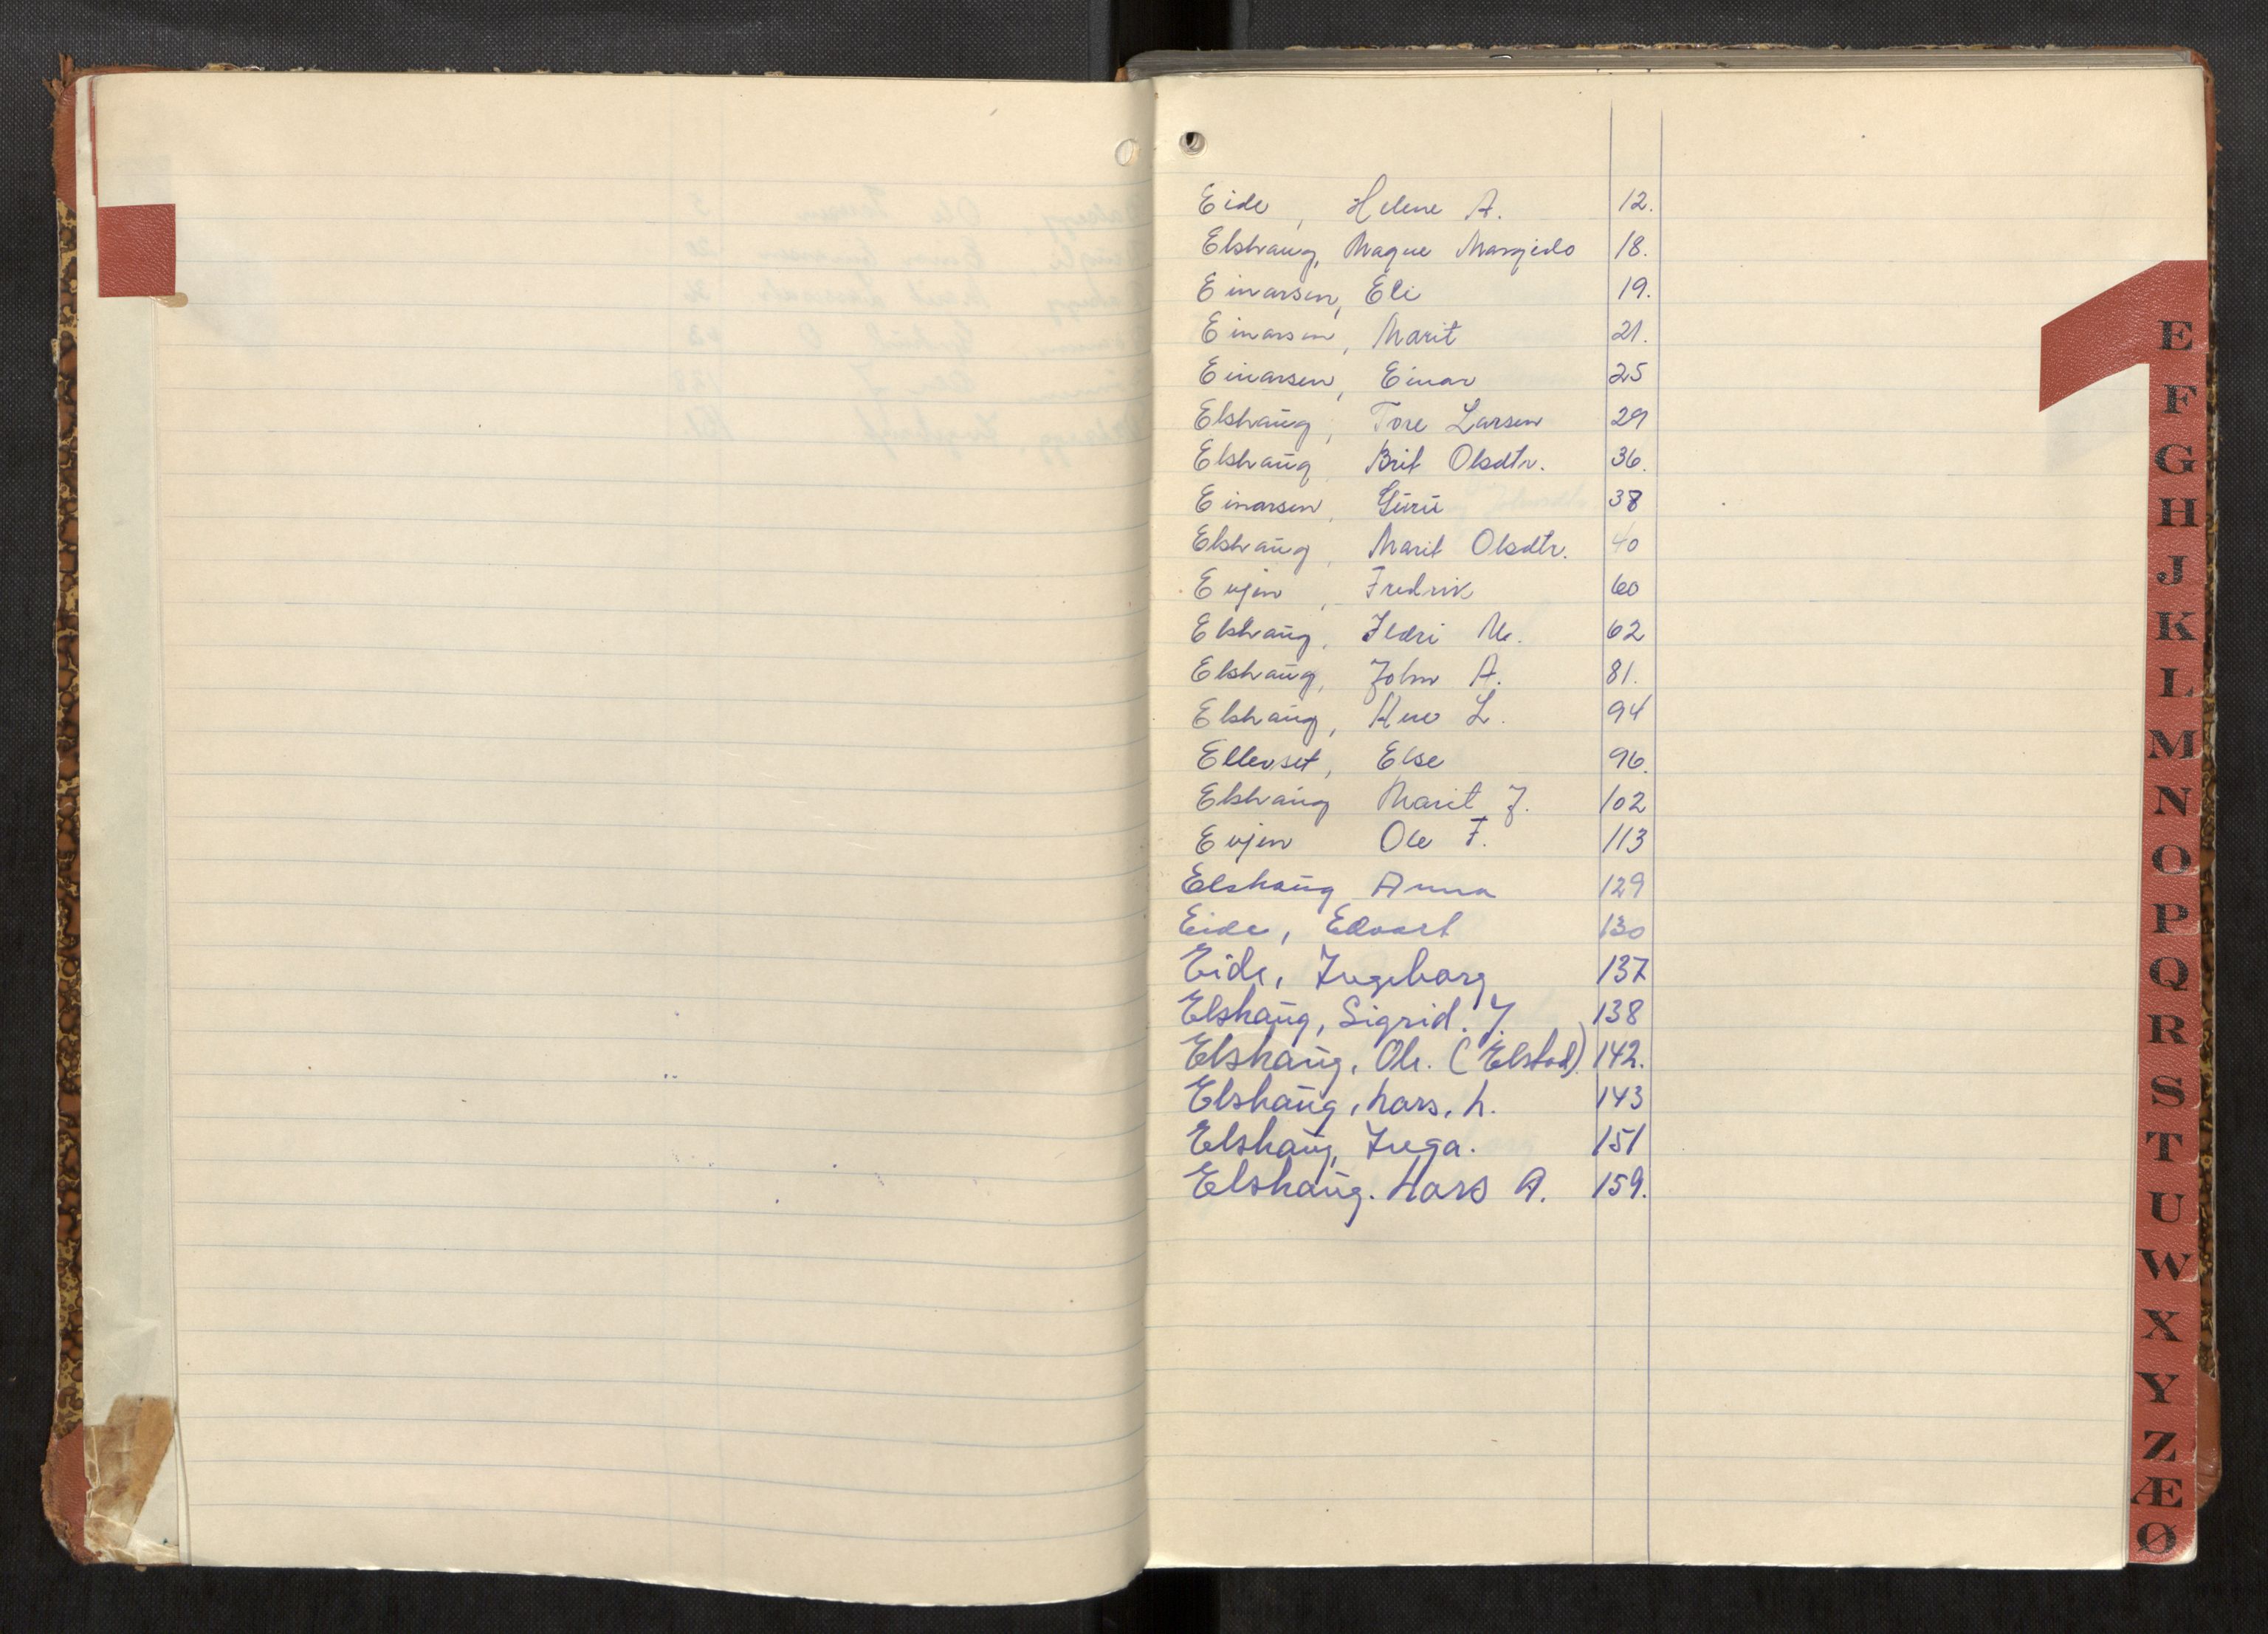 Eide, Helene A. 12.
Elshaug, Magne Margido 18.
Einarsen, Eli 19.
Einarsen, Marit 21.
Einarsen, Einar 25
Elshaug, Tore Larsen 29
Elshaug Brit Olsdtr. 36.
Einarsen, Guru 38
Elshaug, Marit Olsdtr. 40
Evjen, Fredrik 60
Elshaug, Ildri M. 62
Elshaug, John A. 81.
Elshaug, L. 94
Ellevset, Else 96.
Elshaug Marit J. 102
Evjen Ole F. 113
Elshaug Anna 129
Eide, Edvart 130
Eide, Ingeborg 137
Elshaug, Sigrid. J. 138
Elshaug, Ole. (Elstad) 142.
Elshaug, Lars. L. 143
Elshaug, Inga. 151
Elshaug. Lars A. 159.
E
F
G
H
J
K
L
M
N
O
P
Q
R
S
T
U
W
X
Y
Z
Æ
Ø